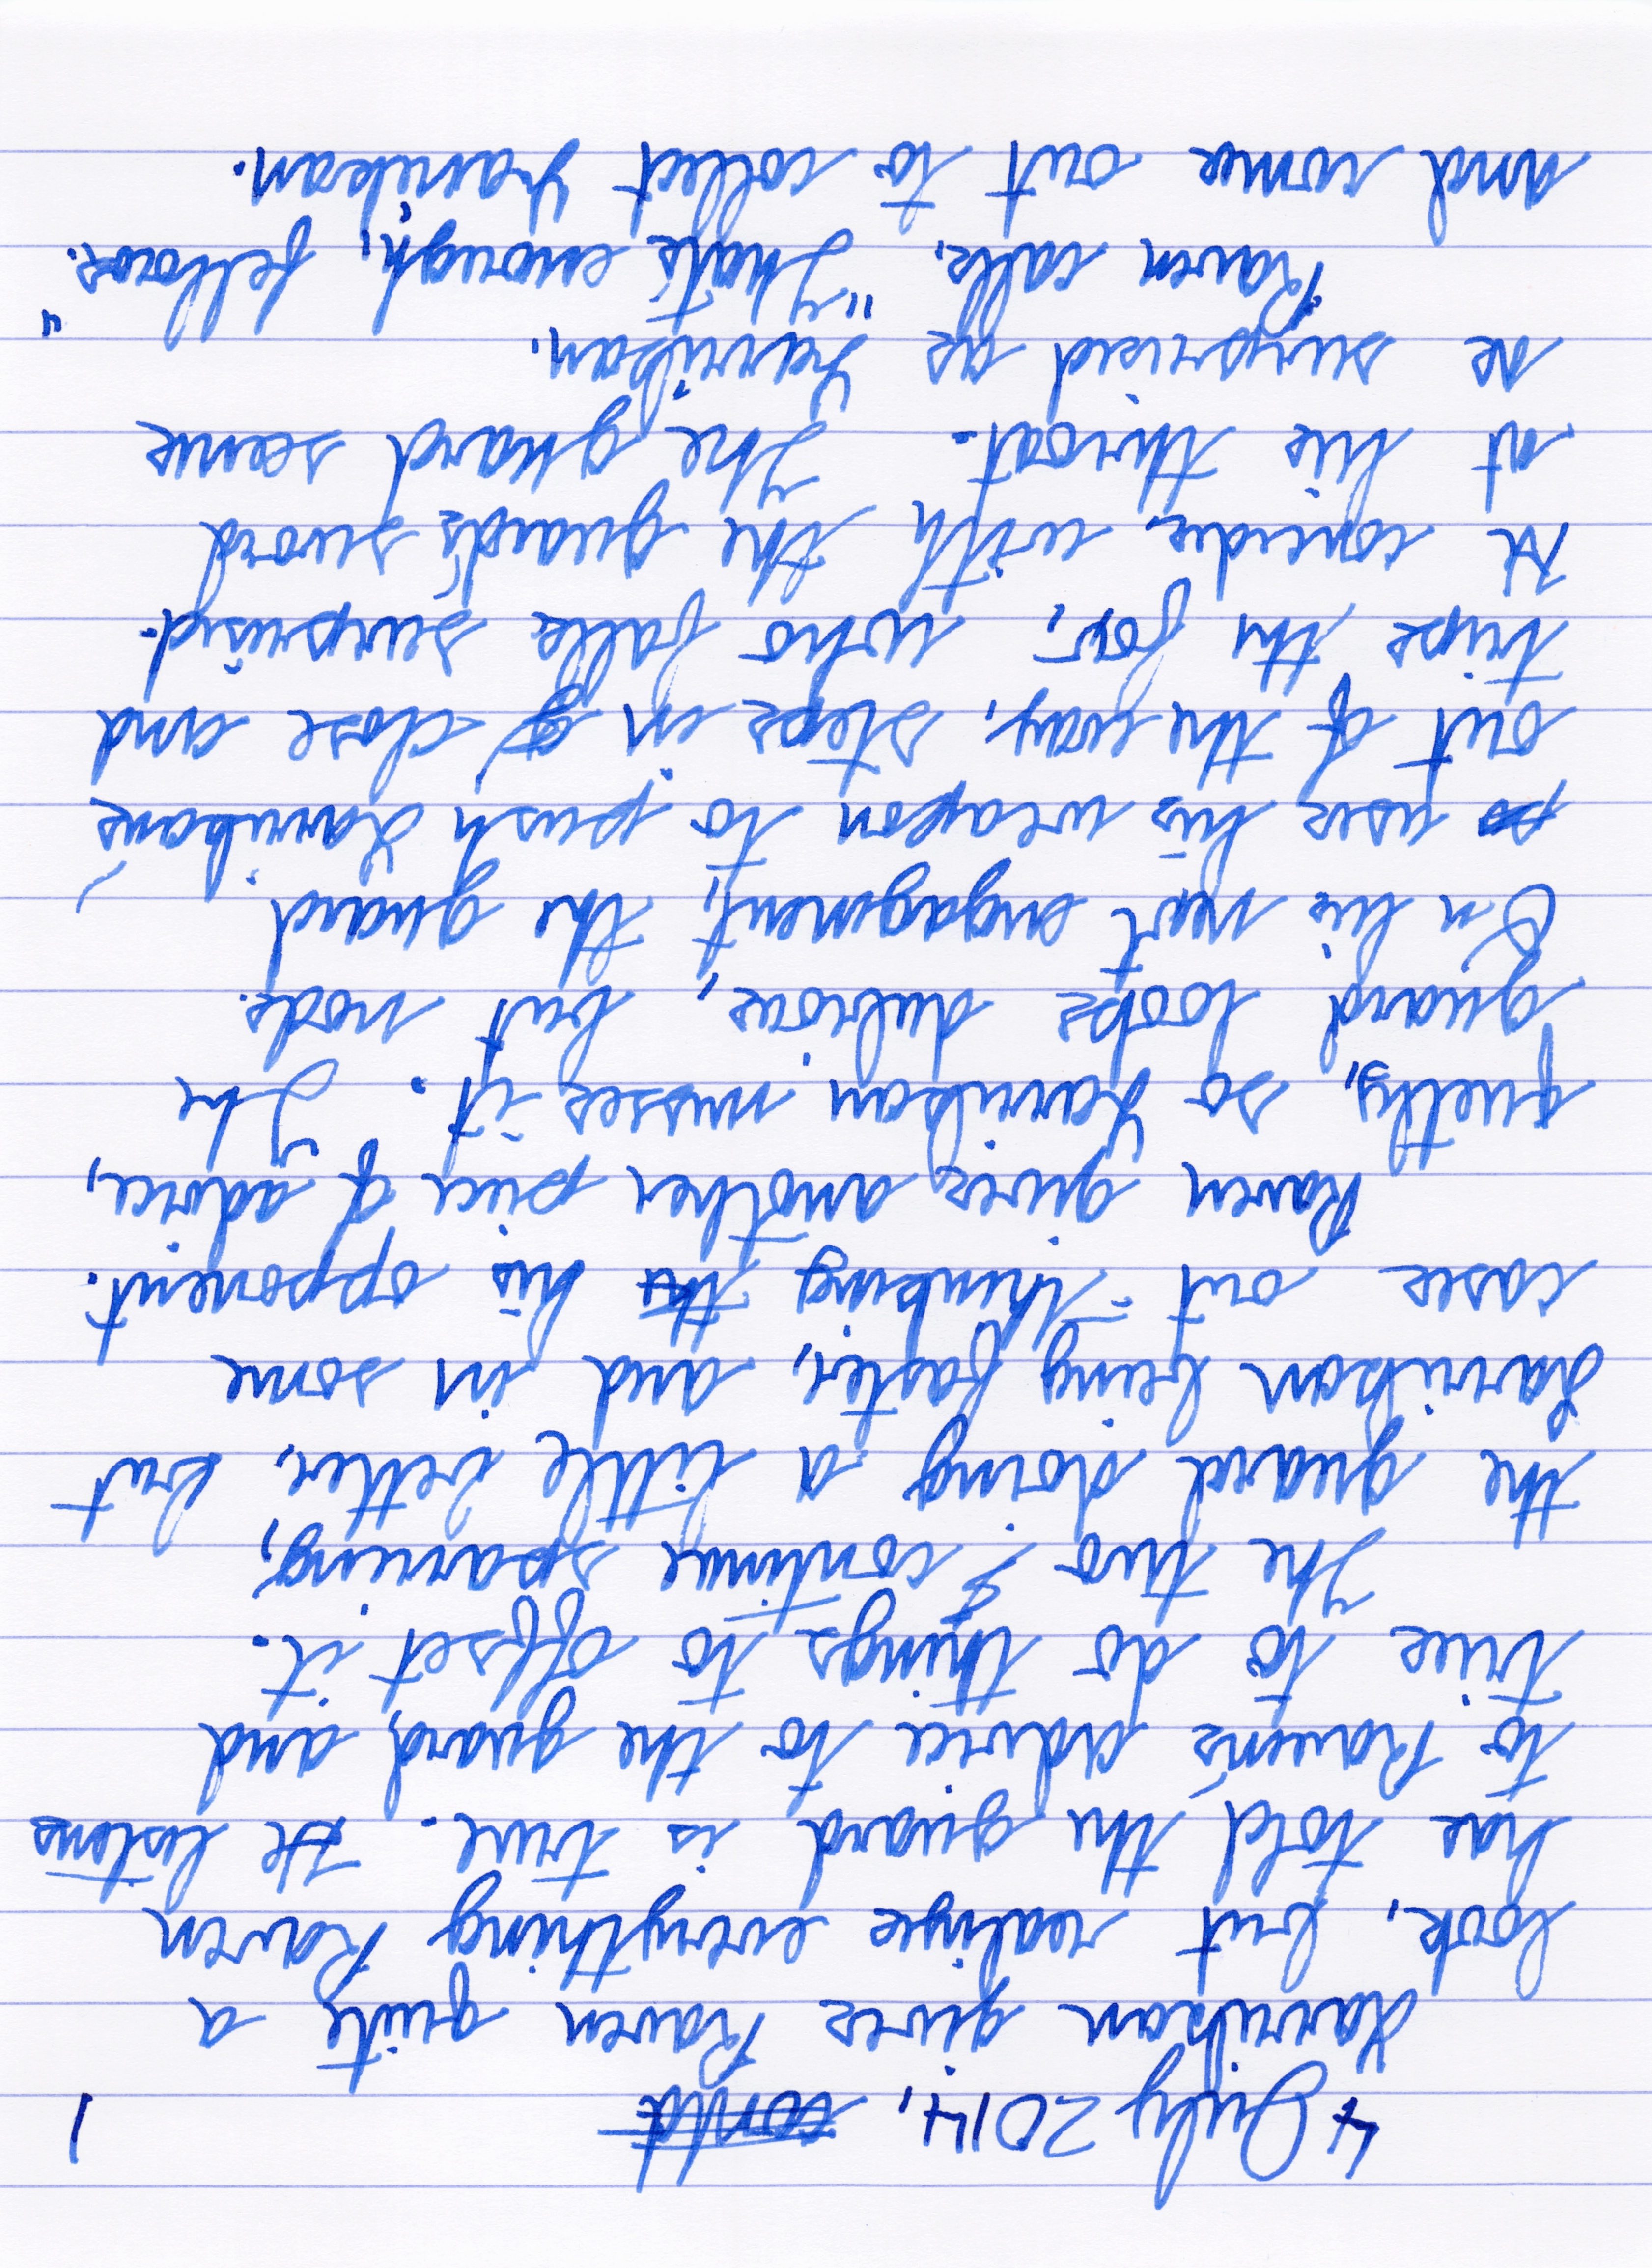 4 July 2014, world 1
Yarrikan gives Raven quite a
look, but realize everything Raven
has told the guard is true. He listens
to Raven's advice to the guard, and
tries to do things to offset it.
The two continue sparring,
the guard doing a little better, but
Yarrikan being faster, and in some
cases out-thinking the his opponent.
Raven gives another piece of advice,
quietly, so Yarrikan misses it. The
guard looks dubious, but nods.
On his next engagement, the guard
uses his weapon to push Yarrikan's
out of the way, steps in close and
trips the for, who falls surprised.
He concedes with the guard's sword
at his throat. The guard seems
as surprised as Yarrikan.
Raven calls, "That's enough, fellows."
and comes out to collect Yarrikan.